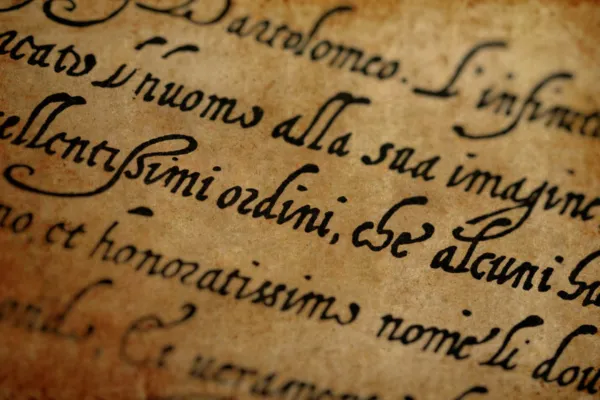 Bartolomeo. L'infinita
cato un'huomo alla sua imagine,
ellentissimi ordini, che alcuni ha
no, et honoratissimo nome li dou
Et veramen